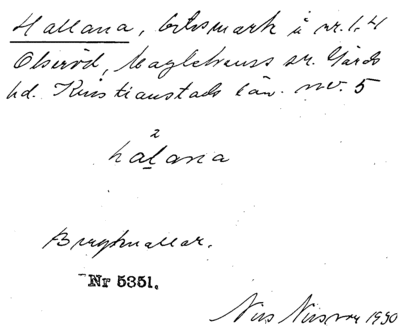 Hallana, utmark å nr. 1, 4
Olseröd, Maglehems sn. Gärds
hd. Kristianstads län. nv. 5
2
halana
Bergknallar.
Nr 5351.
Nils Nilsson 1930